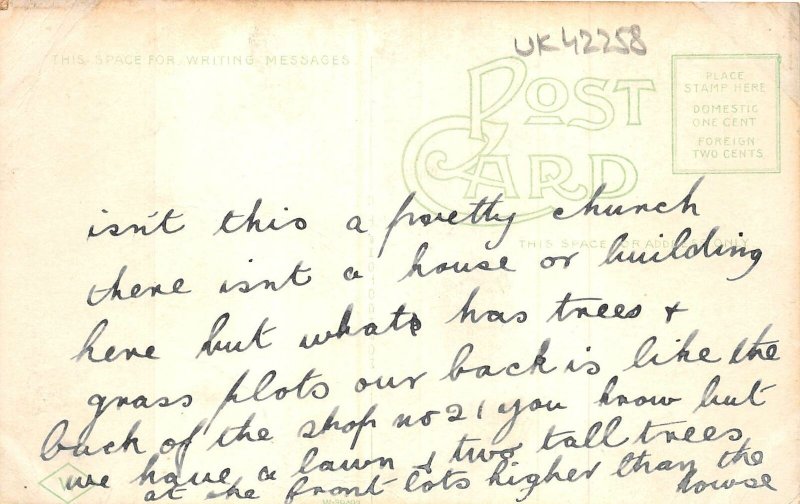 UK42258
THIS SPACE FOR WRITING MESSAGES
POST
CARD
PLACE
STAMP HERE
DOMESTIC
ONE CENT
FOREIGN
TWO CENTS
THIS SPACE FOR ADDRESS ONLY
isn't this a pretty church
there isnt a house or building
here but whats has trees +
grass plots our back is like the
back of the shop no 21 you know but
we have a lawn & two tall trees
at the front lots higher than the
house